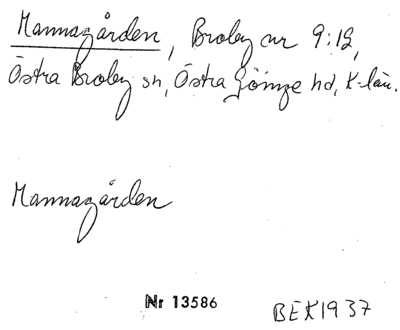 Mannagården, Broby nr 9:12,
Östra Broby sn, Östra Göinge hd, K-län.
Mannagården
Nr 13586
BEK1937